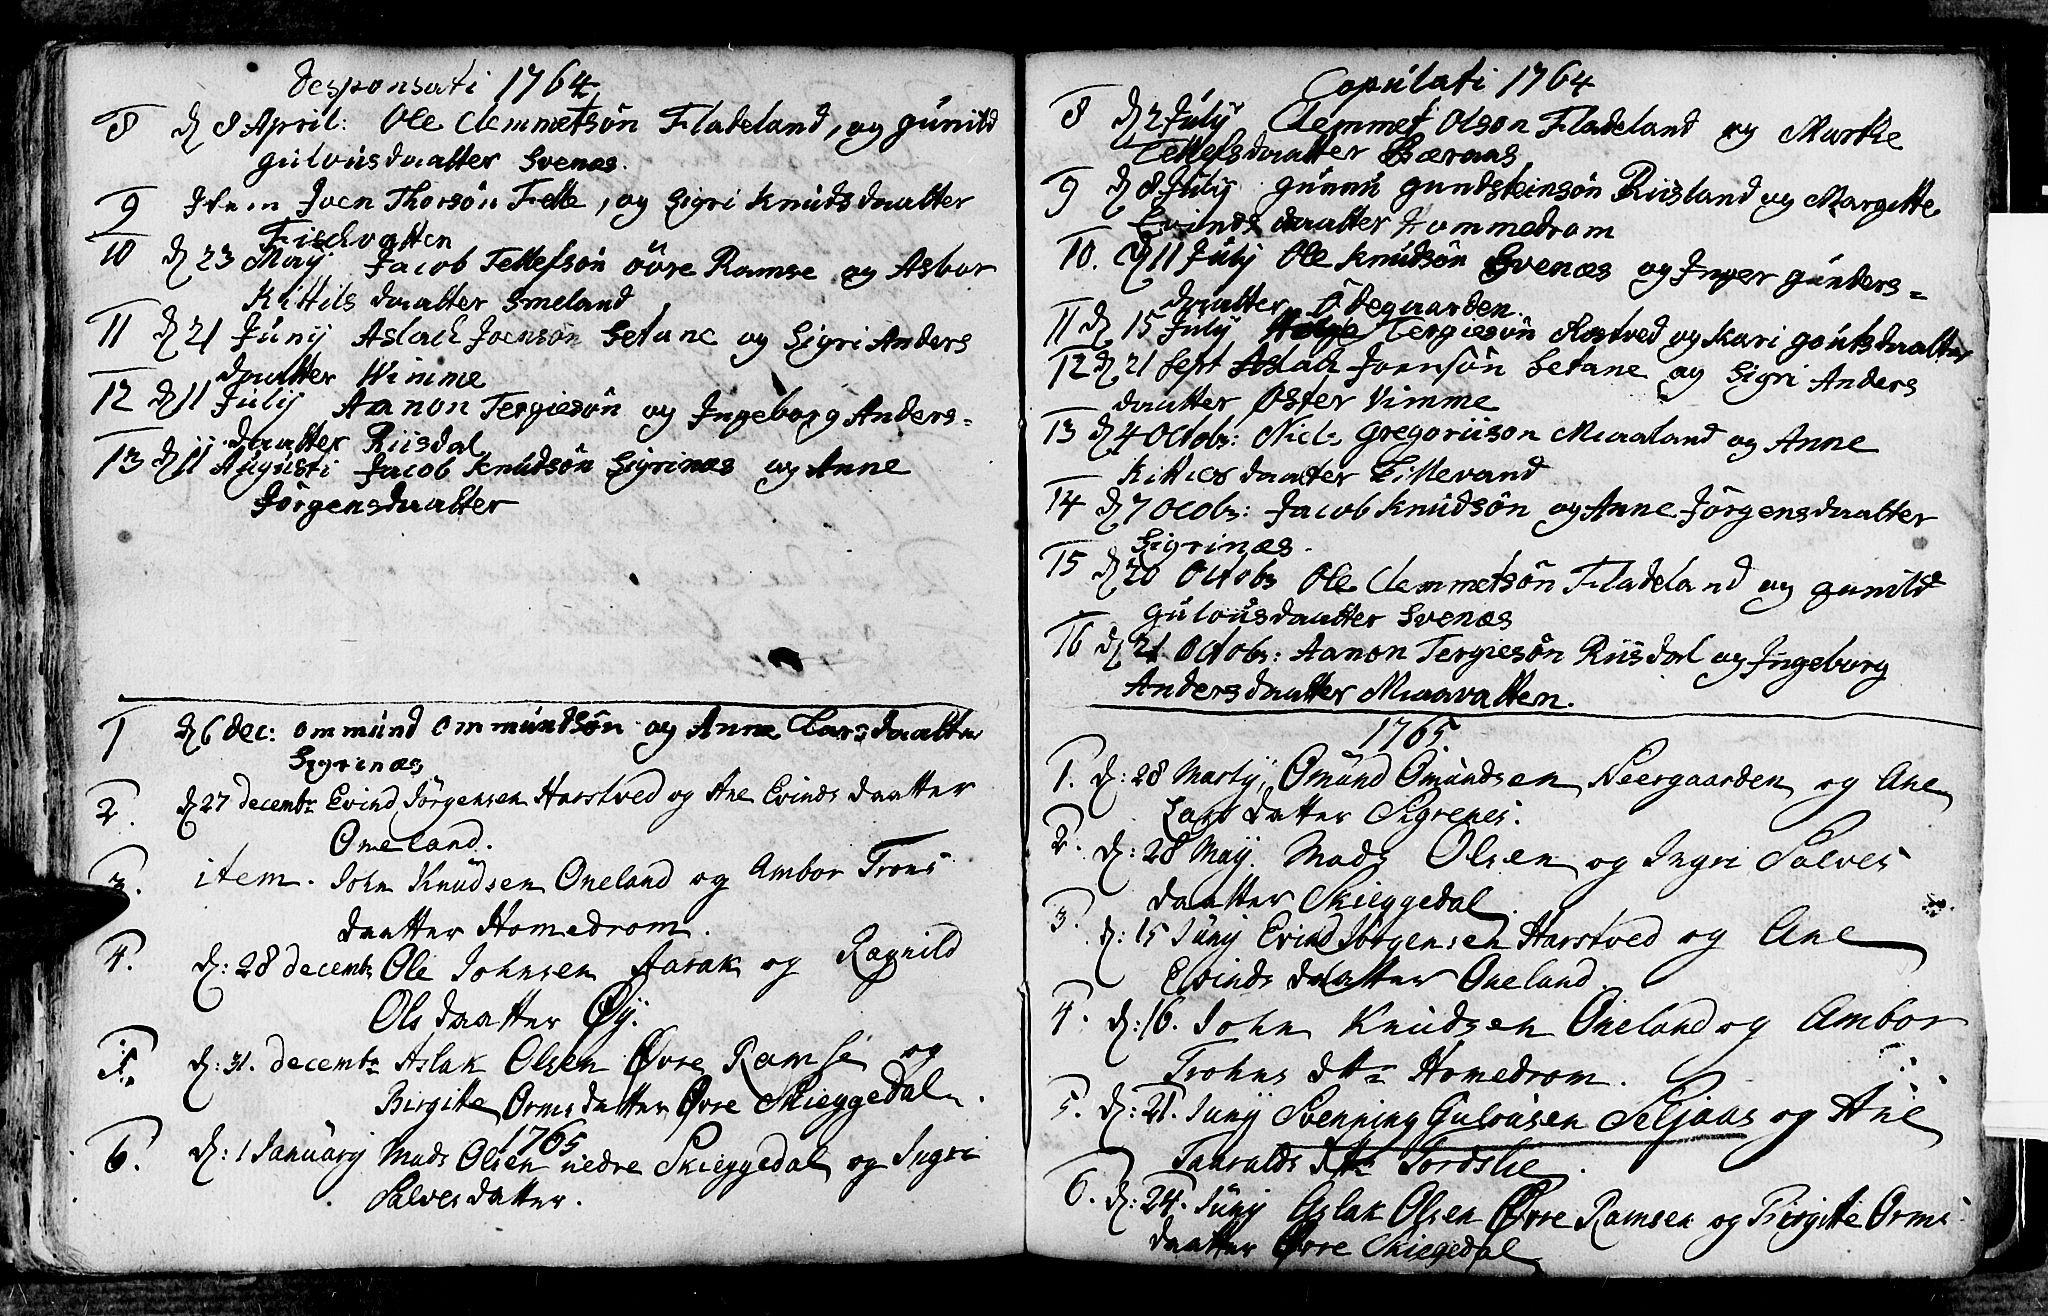 Desponsati 1764
8 d 8 April: Ole Clemmetsön Fladeland, og gúnild
gulousdaatter Svenæs.
9 Item Joen Thorsön Felle, og Sigri Knúdsdaatter
Fischvatten
10 d 23 Maij Jacob Tellefsön övre Ramse og Asbor
Kittilsdaatter Smeland
11 d 21 Júnij Aslach Joensön Setane og Sigri Anders
daatter Wimme
12 d 11 Júlij Aanon Tergiesön og Ingeborg Anders-
daatter Riisdal
13 d 11 Augústi Jacob Knúdsön Sigrinæs og Anne
Jörgensdaatter
1 d 6 dec: ommúnd ommúndsön og Anne Larsdaatter
Sigrinæs
2. d 27 decembr Evind Jörgensen Harstved og Ane Evinds daatter
Oneland.
3. item. John Knúdsen Oneland og Ambor Trons
daatter Homedrom.
4. d: 28 decembr Ole Johnsen Aasak og Ragnild
Ols daatter Øÿ.
5. d: 31. decembr Aslak Olsen Øvre Ramse og
Birgitte Ormsdatter Øvre Skieggedal.
1765
6. d: 1 Januarij Mads Olsen nedre Skieggedal og Ingri
Salvesdatter.
Copúlati 1764
8 d 2 Júlij Clemmet Olson Fladeland og Marthe
Tellefsdaatter
9 d 8 Júlij gúnnú gundsteinsön Riisland og Margitte
Evindsdaatter Hommedrom
10. d 11 Júlij Ole Knúdsön Svenæs og Inger gúnders-
daatter Ödegaarden.
11 d 15 Júly Helge Tergiesön og Kari goútsdaatter
12 d 21 Sept Aslach Joensön Setane og Sigri Anders
daatter Öster Vimme
13 d 4 Octobr: Niels Gregoriison Maaland og Anne
daatter Lillevand
14 d 7 Octobr: Jacob Knúdsön og Anne Jörgensdaatter
Sigrinæs.
15 d 20 Octobr Ole Clemmetsön Fladeland og gunild
Gúlousdaatter Svenæs
16 d 21 Octobr: Aanon Tergiesön Riisdal og Ingeborg
Andersdaatter Maavatten.
1765.
1. d: 28 Martij, Omúnd Omúndsen Neergaarden og Ane
Lars datter Sigrenes.
2. d: 28 Maÿ. Mads Olsen og Ingri Salves
daatter Skieggedal.
3. d: 15 Junÿ Evind Jörgensen Harstved og Ane
Evinds daatter Oneland.
4. d: 16. John Knúdsen Oneland og Ambor
Trohns dtr Homedrom.
5. d: 21. Junÿ Svenning Gúlousen Seljaas og Ane
Taaralds dtr Tordslie.
6. d: 24. Júnÿ Aslak Olsen Øvre Ramsen og Birgitte Orms
daatter Øvre Skiegedal